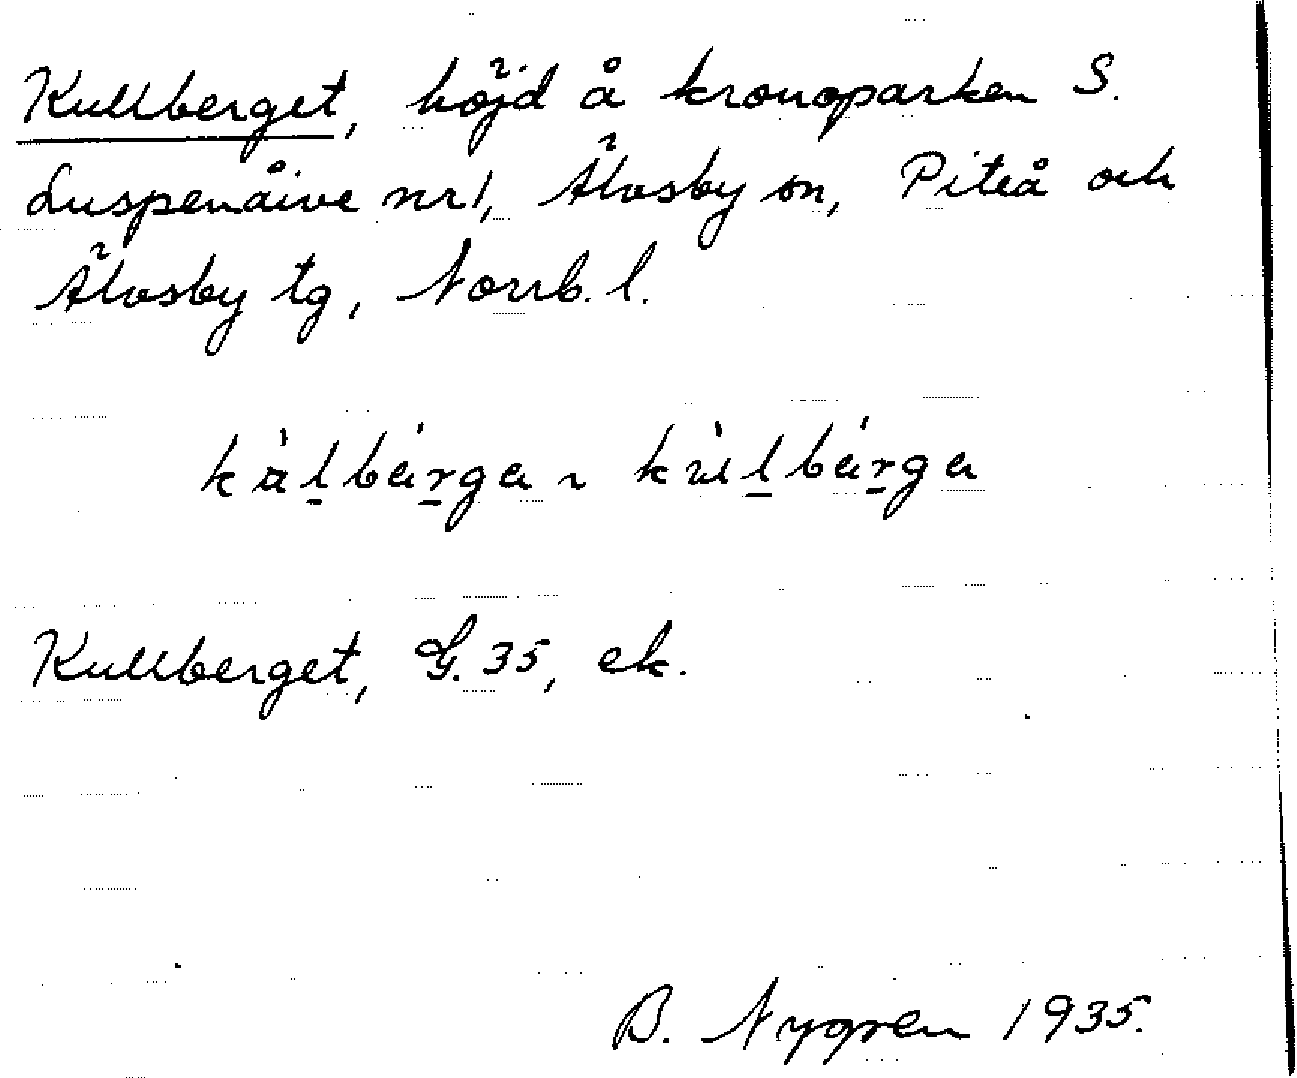 Kullberget, höjd å kronoparken S.
Luspenåive nr 1, Älvsby sn, Piteå och
Älvsby tg, Norrb. l.
kàl̠bár̠ga ~ kùl̠bár̠ga
Kullberget, G. 35, ek.
B. Nygren 1935.